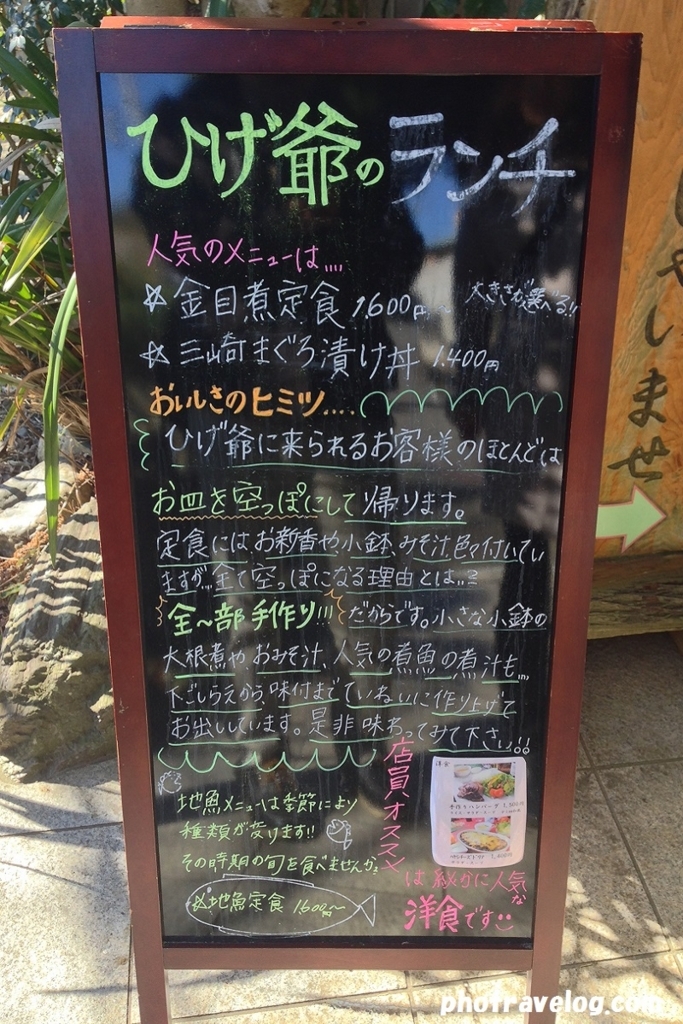 ひげ爺のランチ
人気のメニューは....
☆ 金目煮定食 1,600円～ 大きさが選べる!!
☆ 三崎まぐろ漬け丼 1,400円
おいしさのヒミツ....
ひげ爺に来られるお客様のほとんどは
お皿を空っぽにして帰ります。
定食には、お新香や小鉢、みそ汁、色々付いてい
ますが、全て空っぽになる理由とは..?
全～部手作り!!! だからです。小さな小鉢の
大根煮や、おみそ汁、人気の煮魚の煮汁も...
下ごしらえから、味付まで ていねいに作り上げて
お出ししています。是非味わってみて下さい!!
地魚メニューは季節により
種類が変ります!!
その時期の旬を食べませんか?
☆地魚定食 1600円～
店員オススメ
は秘かに人気な
洋食です
洋食
手作りハンバーグ
しませ
photravelog.com